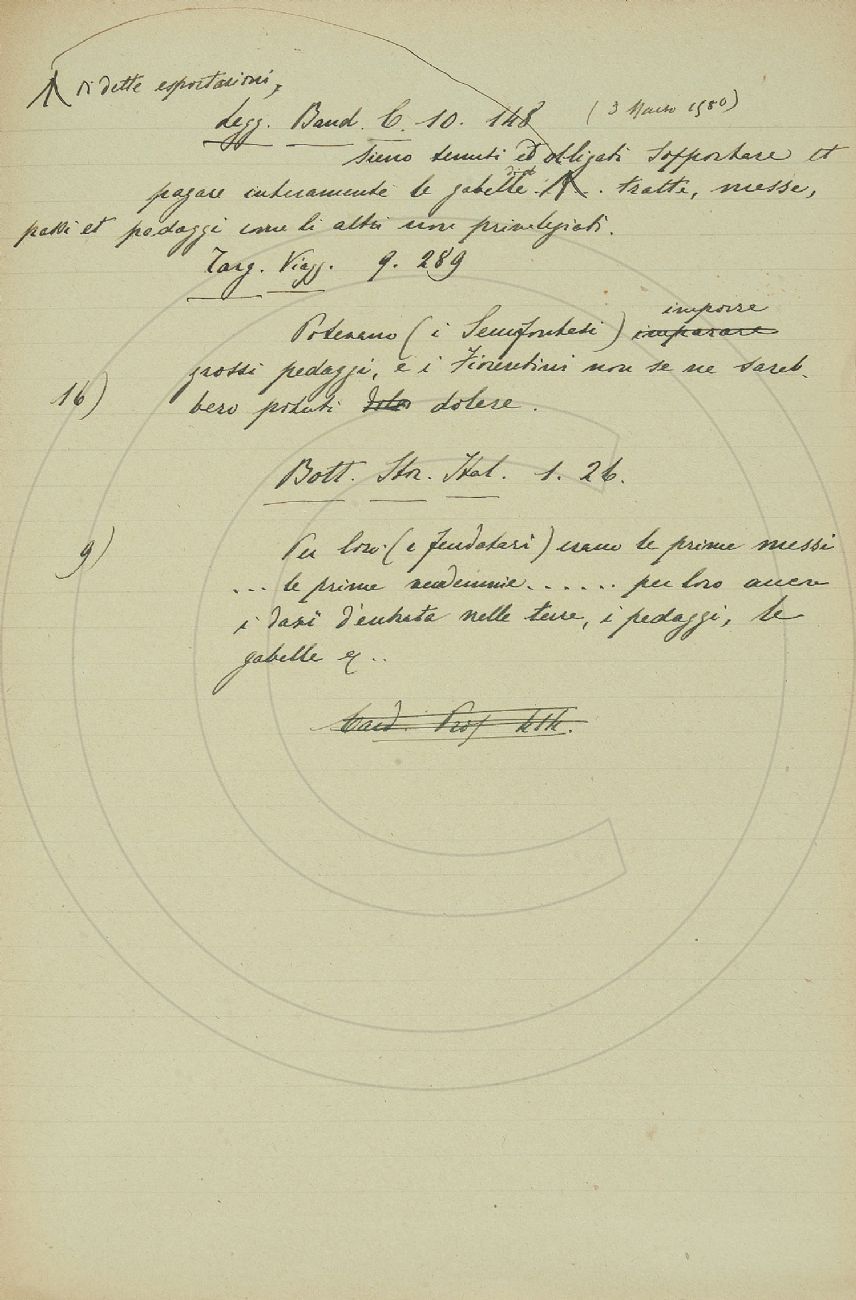 di dette esportazioni,
Legg. Band. C. 10. 148 (3 Marzo 1580)
sieno tenuti et obligati sopportare et
pagare interamente le gabelle . tratte, messe,
passi et padaggi come li altri non privelegiati.
Targ. Viagg. 9. 289
imporre
Potevano (i Semifontesi) imparare
grossi pedaggi, e i Fiorentini non se ne sareb-
16) bero potuti dolere.
Bott. Stor. Ital. 1. 26.
9) Per loro (i feudatari) erano le prime messi
... le prime vendemmie...... per loro ancora
i dazi d'entrata nelle terre, i pedaggi, le
gabelle ec..
Card. Prof.